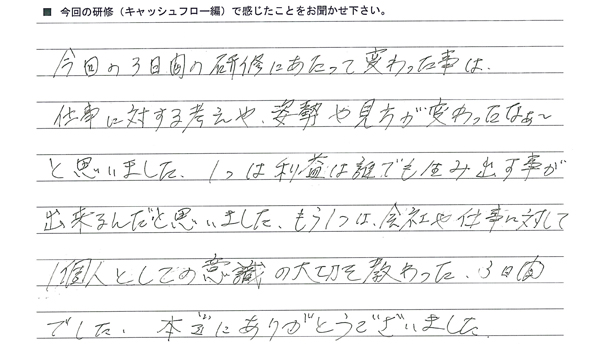 ■ 今回の研修（キャッシュフロー編）で感じたことをお聞かせ下さい。
今回の3日間の研修にあたって変わった事は、
仕事に対する考えや、姿勢や見方が変わったなぁ～
と思いました。1つは利益は誰でも生み出す事が
出来るんだと思いました。もう1つは、会社や仕事に対して
1個人としての意識の大切を教わった、3日間
でした。本当にありがとうございました。